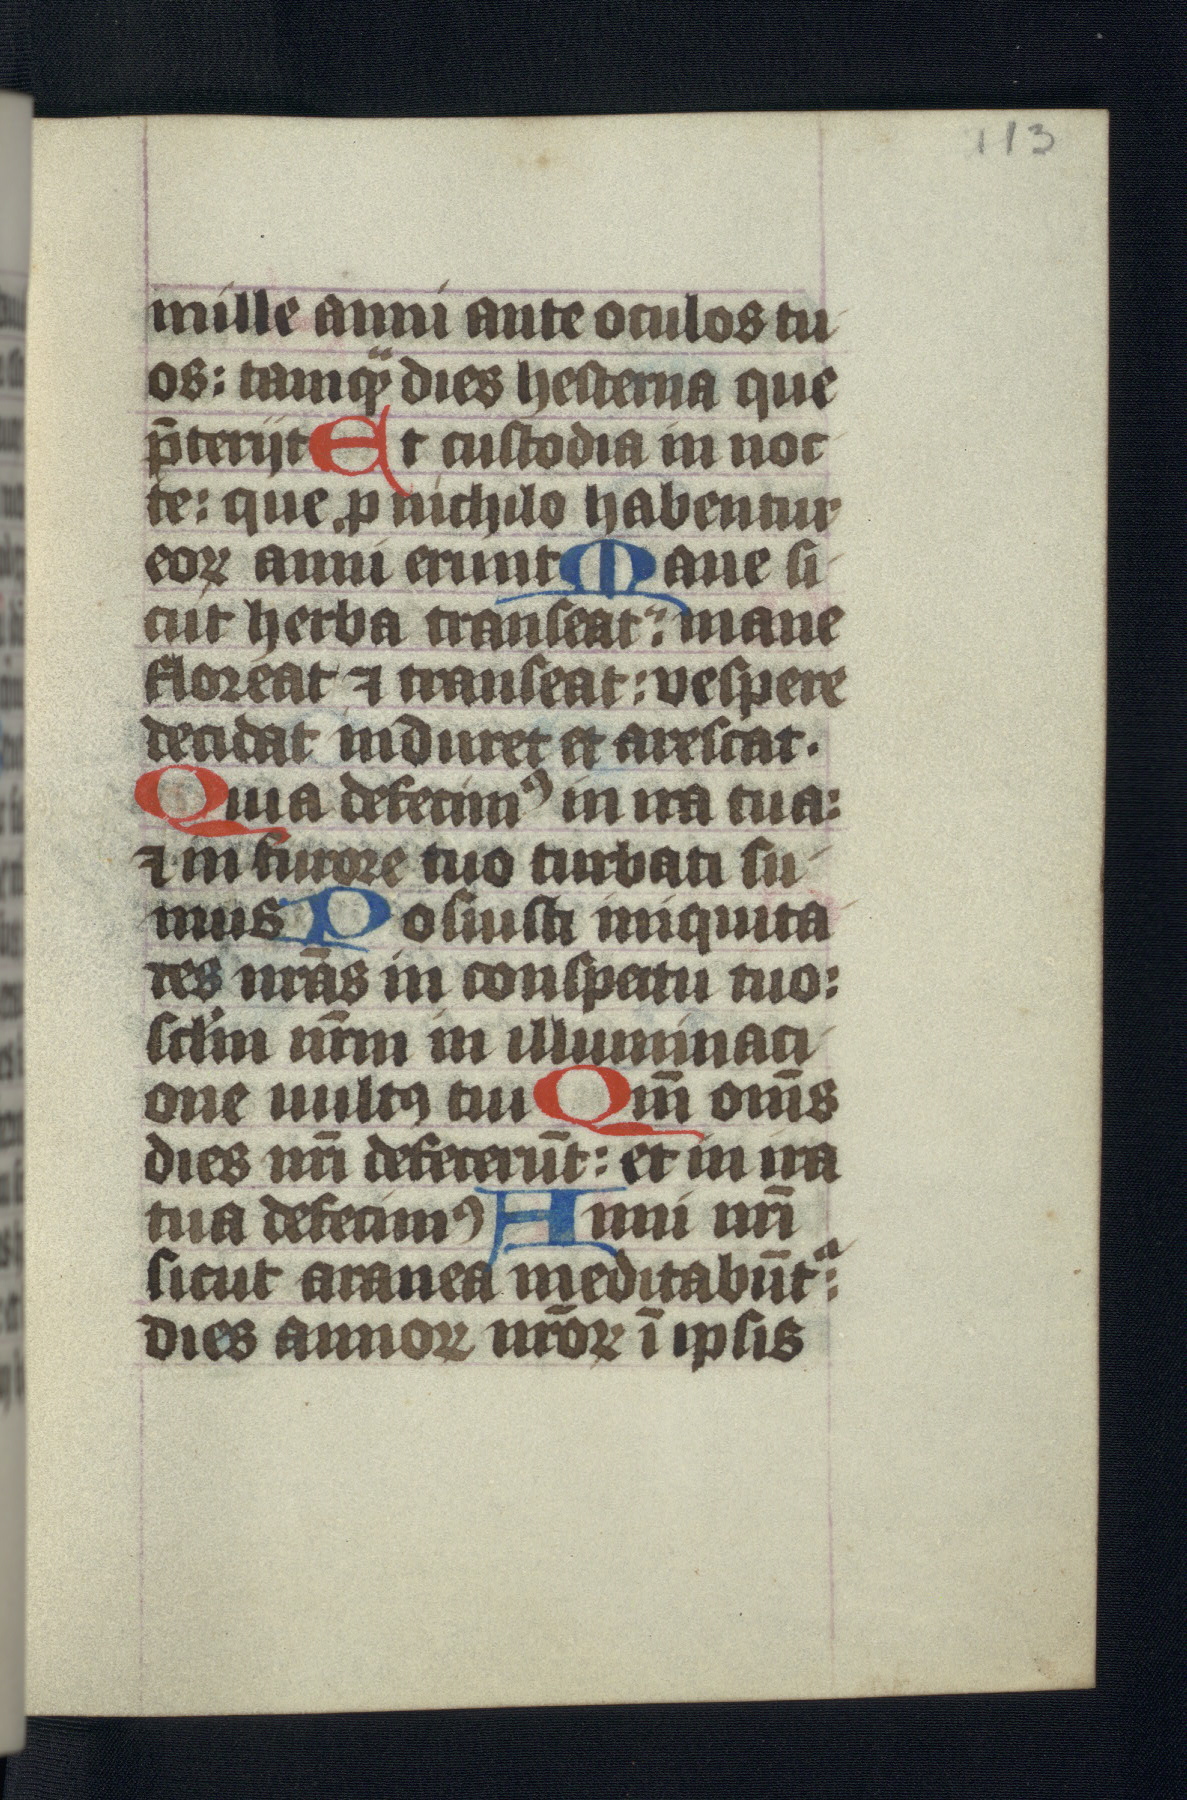 113
mille anni ante oculos tu
os: tamqͣ dies hesterna que
p̄terijt Et custodia in noc
te: que ꝓ nichilo habentur
eoꝝ anni erunt Mane si
cut herba transeat: mane
floreat ⁊ transeat: vespere
decidat induret et arescat.
Quia defecimꝰ in ira tua:
⁊ in furore tuo turbati su
mus Posuisti iniquita
tes nr̄as in conspectu tuo:
scl̄m nr̄m in illuminaci
one uultꝰ tui Qm̄ om̄s
dies nr̄i defecerūt: et in ira
tua defecimꝰ Anni nr̄i
sicut aranea meditabūtᷣ:
dies annoꝝ nr̄oꝝ ī ipsis